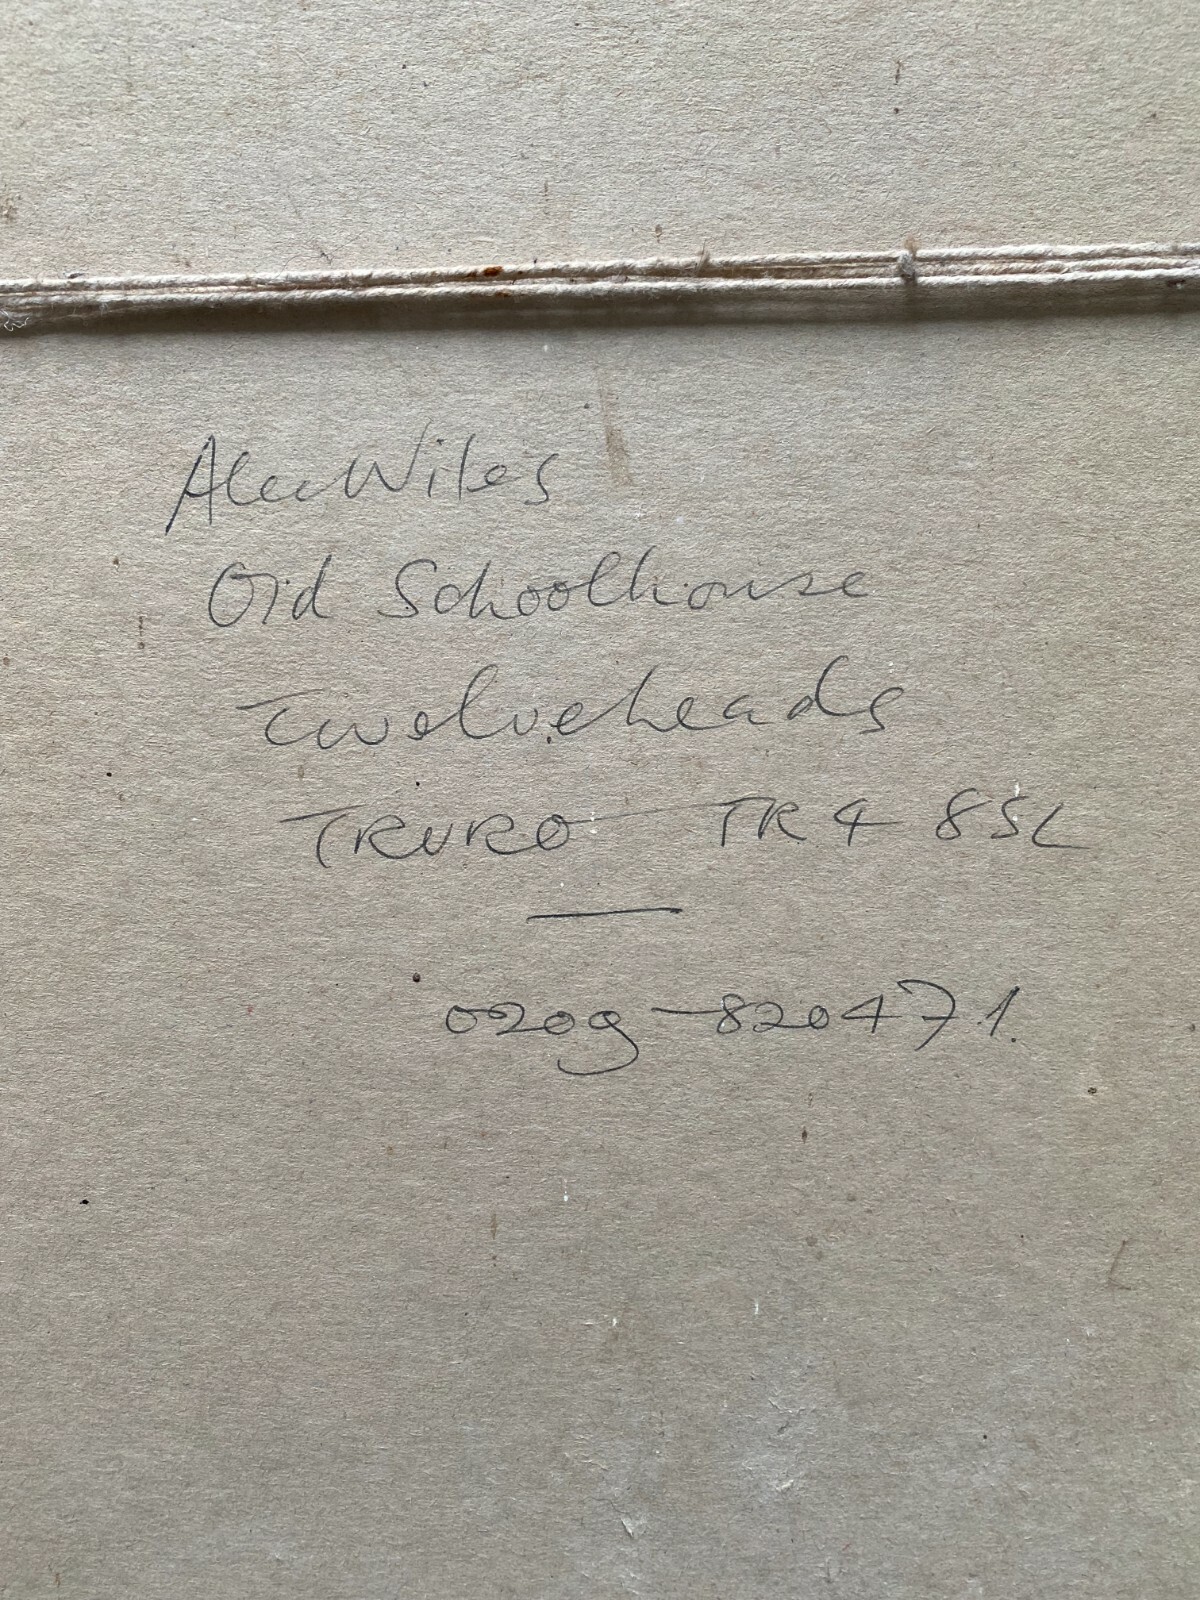 Alec Wiles
Old Schoolhouse
Twelveheads
TRURO TR4 8SL
—
0209-820471.